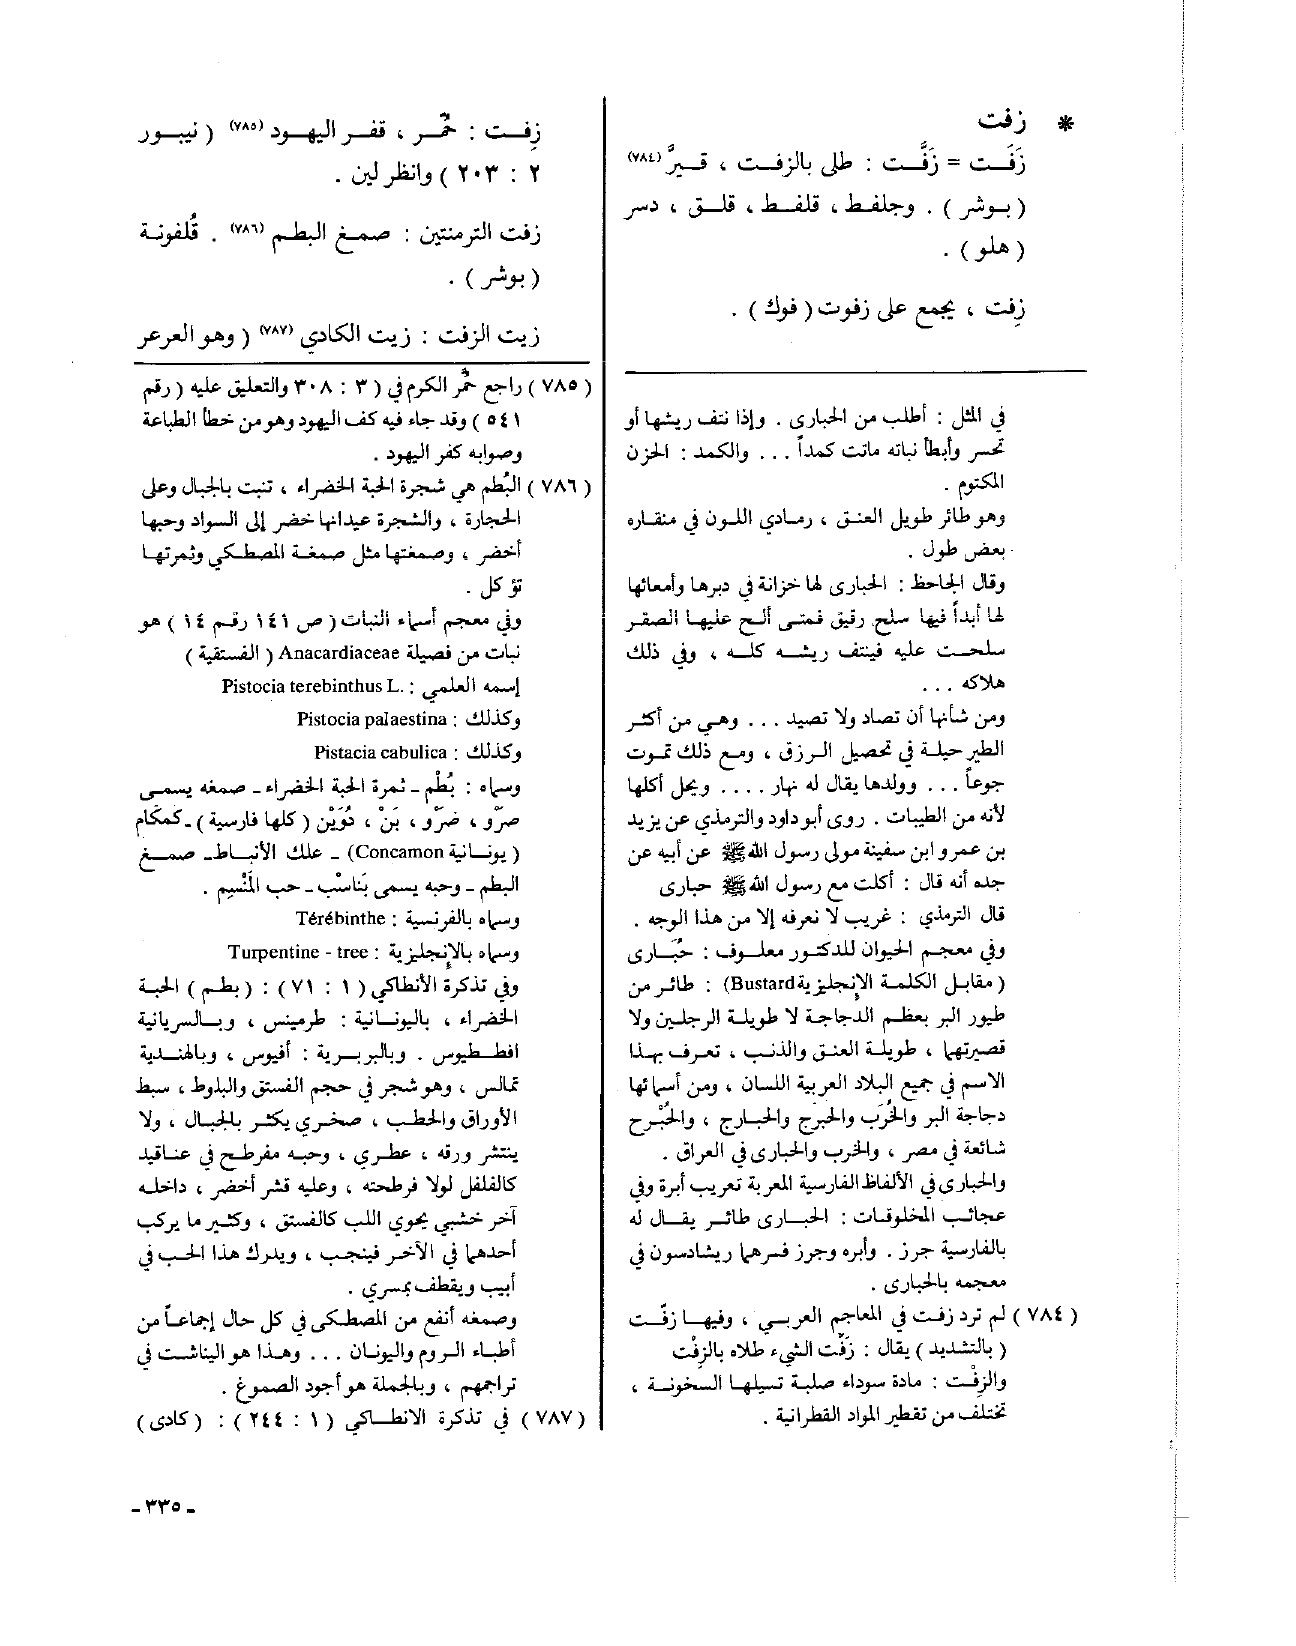 * زفت
زَفَت = زَفَّت : طلى بالزفت ، قيرَّ (٧٨٤)
( بوشر ) . وجلفط ، قلفط ، قلق ، دسر
( هلو ) .
زِفت ، يجمع على زفوت ( فوك ) .
في المثل : أطلب من الحبارى . وإذا نتف ريشها أو
تحسر وأبطأ نباته ماتت كمداً ... والكمد : الحزن
المكتوم .
وهو طائر طويل العنق ، رمادي اللون في منقاره
بعض طول .
وقال الجاحظ : الحبارى لها خزانة في دبرها وأمعائها
لها أبداً فيها سلح رقيق فمتى ألح عليها الصقر
سلحت عليه فينتف ريشه كله ، وفي ذلك
هلاكه ...
ومن شأنها أن تصاد ولا تصيد ... وهي من أكثر
الطير حيلة في تحصيل الرزق ، ومع ذلك تموت
جوعاً ... وولدها يقال له نهار .... ويحل أكلها
لأنه من الطيبات . روى أبو داود والترمذي عن يزيد
بن عمرو ابن سفينة مولى رسول الله ﷺ عن أبيه عن
جده أنه قال : أكلت مع رسول الله ﷺ حبارى
قال الترمذي : غريب لا نعرفه إلا من هذا الوجه .
وفي معجم الحيوان للدكتور معلوف : حُبَارى
( مقابل الكلمة الإنجليزية Bustard) : طائر من
طيور البر بعظم الدجاجة لا طويلة الرجلين ولا
قصيرتها ، طويلة العنق والذنب ، تعرف بهذا
الاسم في جميع البلاد العربية اللسان ، ومن أسمائها
دجاجة البر والخُرَب والحبرج والحبارج ، والحُبْرج
شائعة في مصر ، والخرب والحبارى في العراق .
والحبارى في الألفاظ الفارسية المعربة تعريب أبرة وفي
عجائب المخلوقات : الحبارى طائر يقال له
بالفارسية جرز . وأبره وجرز فسرهما ريشادسون في
معجمه بالحبارى .
( ٧٨٤ ) لم ترد زفت في المعاجم العربي ، وفيها زفّت
( بالتشديد ) يقال : زَفَّت الشيء طلاه بالزِفْت
والزِفْت : مادة سوداء صلبة تسيلها السخونة ،
تختلف من تقطير المواد القطرانية .
زِفت : حُمَّر ، قفر اليهود (٧٨٥) ( نيبور
٢ : ٢٠٣ ) وانظر لين .
زفت الترمنتين : صمغ البطم (٧٨٦) . قُلفونة
( بوشر ) .
زيت الزفت : زيت الكادي (٧٨٧) ( وهو العرعر
( ٧٨٥ ) راجع حُمَّر الكرم في ( ٣ : ٣٠٨ والتعليق عليه ( رقم
٥٤١ ) وقد جاء فيه كف اليهود وهو من خطأ الطباعة
وصوابه كفر اليهود .
( ٧٨٦ ) البُطم هي شجرة الحبة الخضراء ، تنبت بالجبال وعلى
الحجارة ، والشجرة عيدانها خضر إلى السواد وحبها
أخضر ، وصمغتها مثل صمغة المصطكي وثمرتها
تؤكل .
وفي معجم أسماء النبات ( ص ١٤١ رقم ١٤ ) هو
نبات من فصيلة Anacardiaceae ( الفستقية )
إسمه العلمي : Pistocia terebinthus L.
وكذلك : Pistocia palaestina
وكذلك : Pistacia cabulica
وسماه : بُطْم - ثمرة الحبة الخضراء - صمغه يسمى
ضرّو ، ضَرْو ، بَنْ ، دُوَيْن ( كلها فارسية ) - كمكام
( يونانية Concamon) - علك الأنباط - صمغ
البطم - وحبه يسمى بَنَاسْب - حب المَنْسِم .
وسماه بالفرنسية : Térébinthe
وسماه بالإنجليزية : Turpentine - tree
وفي تذكرة الأنطاكي ( ١ : ٧١ ) : ( بطم ) الحبة
الخضراء ، باليونانية : طرمينس ، وبالسريانية
افططيوس . وبالبربرية : أفيوس ، وبالهندية
تمالس ، وهو شجر في حجم الفستق والبلوط ، سبط
الأوراق والحطب ، صخري يكثر بالجبال ، ولا
ينتشر ورقه ، عطري ، وحبه مفرطح في عناقيد
كالفلفل لولا فرطحته ، وعليه قشر أخضر ، داخله
آخر خشبي يحوي اللب كالفستق ، وكثير ما يركب
أحدهما في الآخر فينجب ، ويدرك هذا الحب في
أبيب ويقطف بمسري .
وصمغه أنفع من المصطكى في كل حال إجماعاً من
أطباء الروم واليونان ... وهذا هو الياشت في
تراجمهم ، وبالجملة هو أجود الصموغ .
( ٧٨٧ ) في تذكرة الانطاكي ( ١ : ٢٤٤ ) : ( كادى )
- ٣٣٥ -